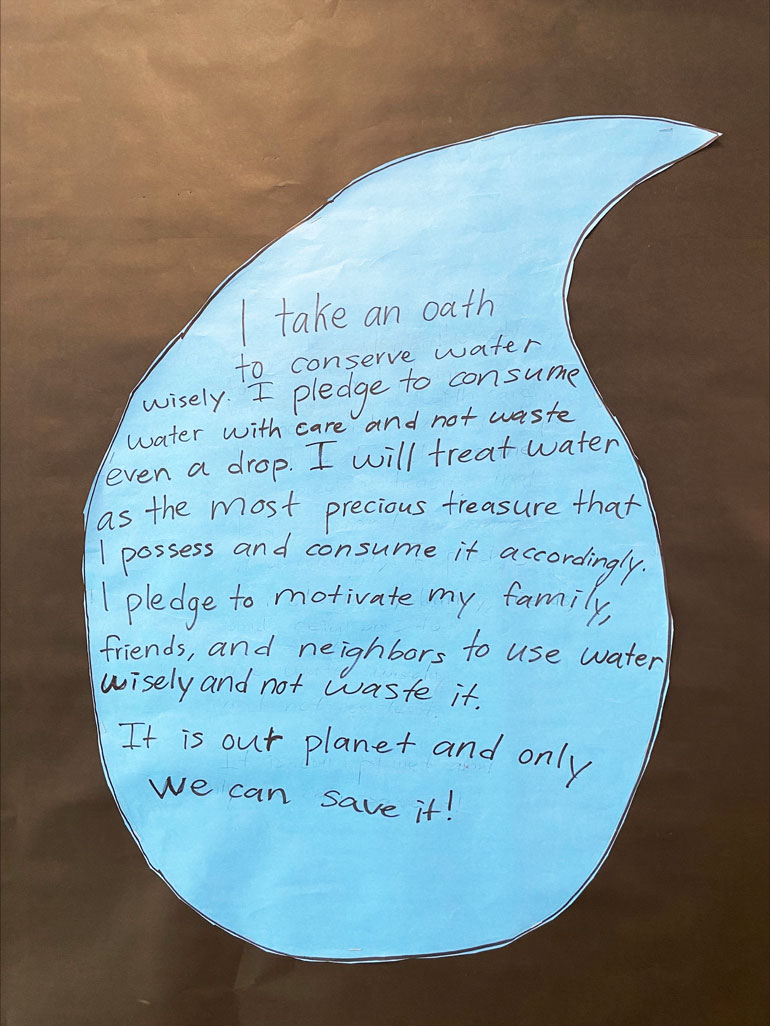 I take an oath
to conserve water
wisely. I pledge to consume
water with care and not waste
even a drop. I will treat water
as the most precious treasure that
I possess and consume it accordingly.
I pledge to motivate my family,
friends, and neighbors to use water
wisely and not waste it.
It is our planet and only
we can save it!